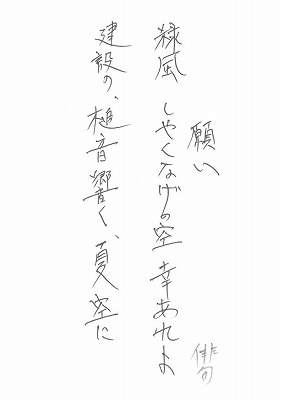 俳句
願い
緑風 しゃくなげの空 幸あれよ
建設の、槌音響く、夏空に